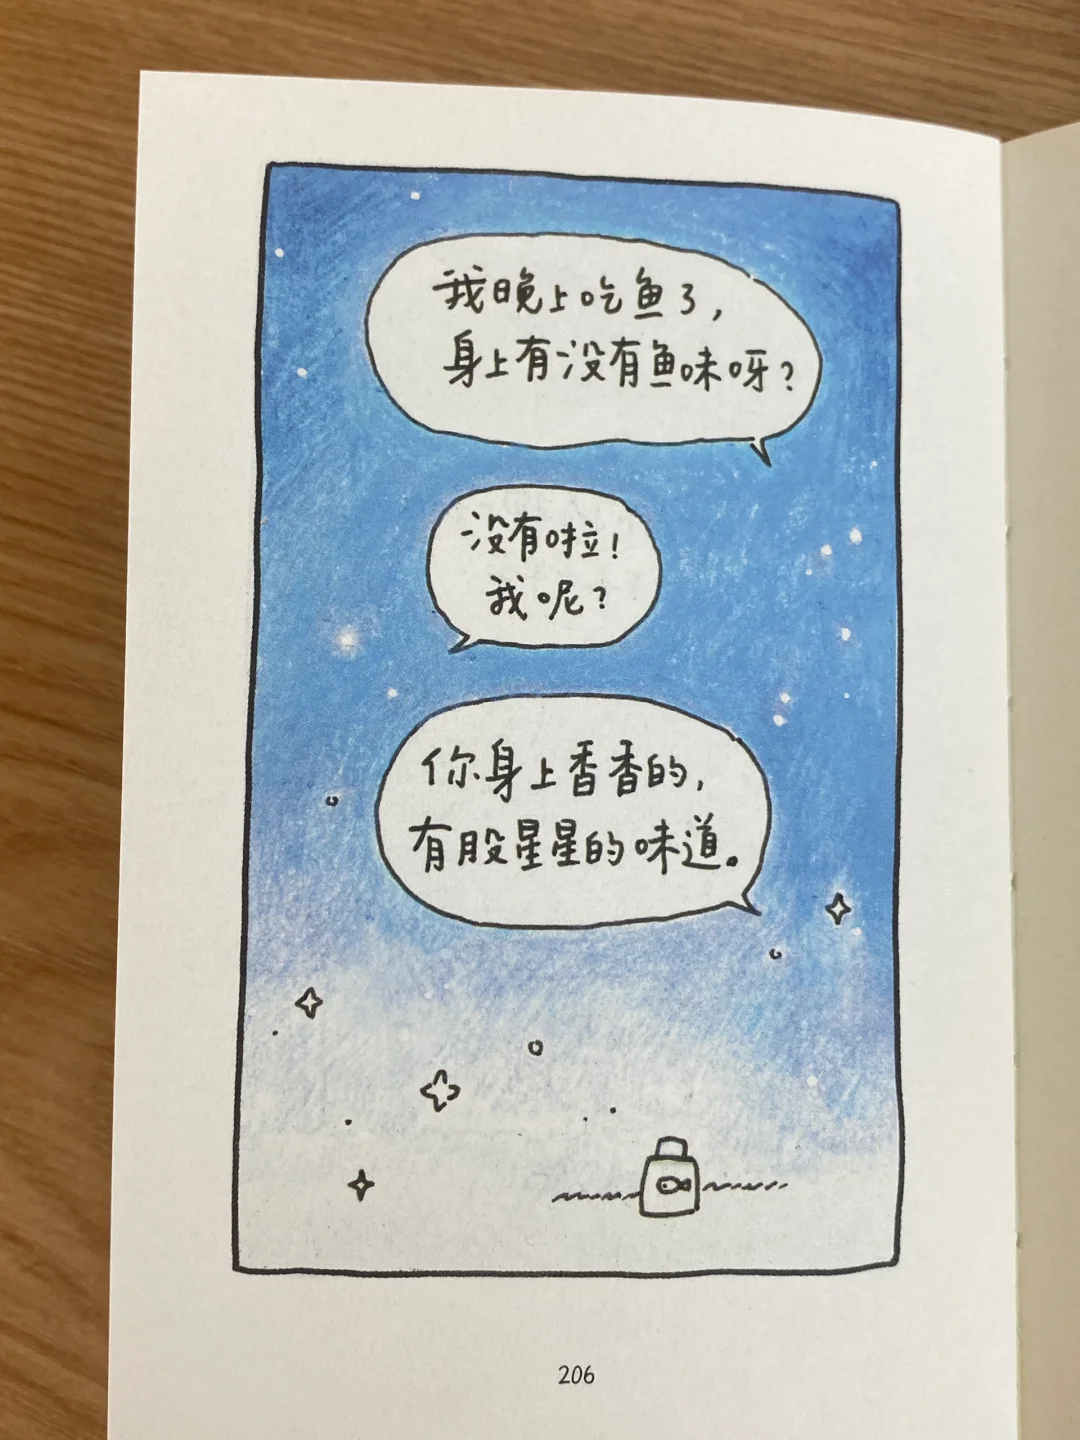 我晚上吃鱼了，
身上有没有鱼味呀？
没有啦！
我呢？
你身上香香的，
有股星星的味道。
206